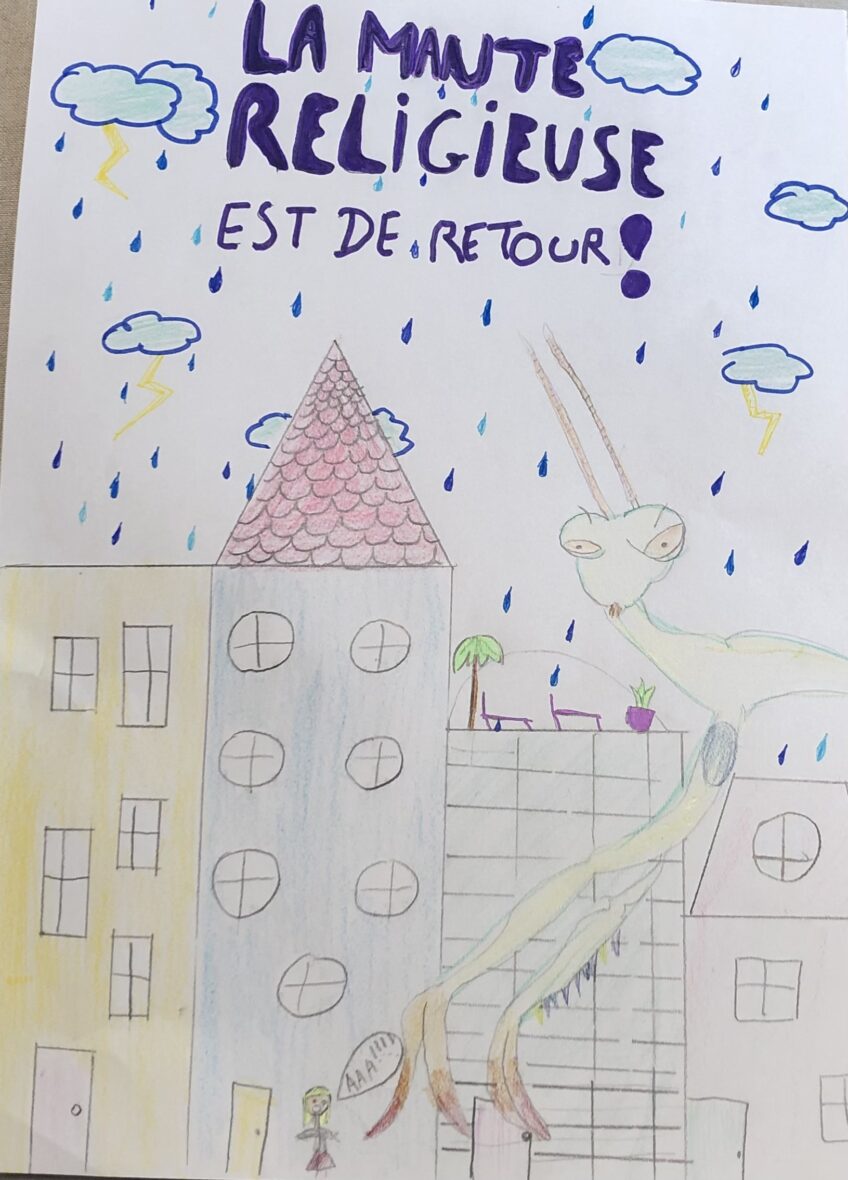 LA MANTE
RELIGIEUSE
EST DE RETOUR!
AAA!!!!